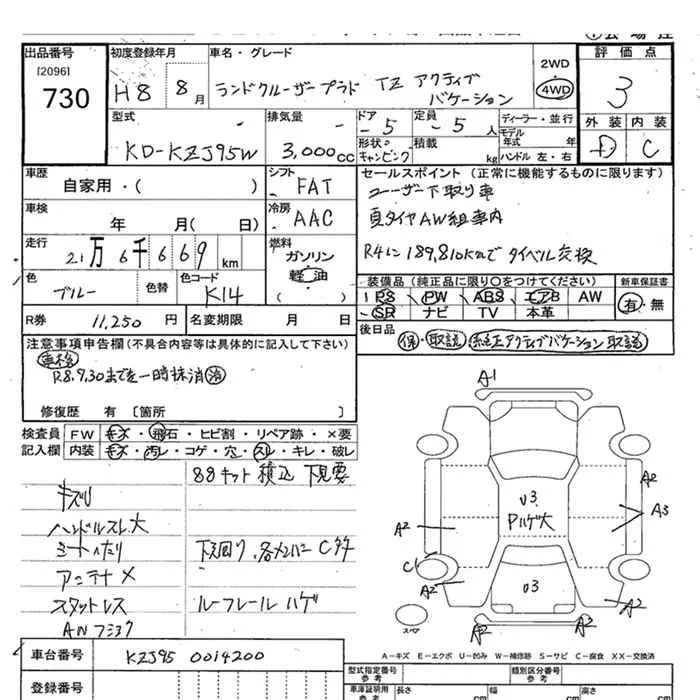 出品番号
[2096]
730
初度登録年月
H8 8月
車名・グレード
ランドクルーザープラド TZ アクティブ
バケーション
2WD
4WD
評価点
3
外装 内装
D C
型式
KD-KZJ95W
排気量
3,000cc
ドア
5
定員
5人
形状
キャンピング
積載
kg
ディーラー・並行
モデル
年式 年
ハンドル 左・右
車歴
自家用・( )
シフト
FAT
車検
年 月( 日)
冷房
AAC
走行
21万6千669km
燃料
ガソリン
軽油
( )
色
ブルー
色替
色コード
K14
セールスポイント(正常に機能するものに限ります)
ユーザー下取り車
夏タイヤAW組車内
R4に189,810kmでタイベル交換
装備品(純正品に限り〇をつけてください)
PS PW ABS エアB AW
SR ナビ TV 本革
新車保証書
有・無
R券
11,250円
名変期限 月 日
後日品
保・取説 純正アクティブバケーション取説
注意事項申告欄(不具合内容等は具体的に記入して下さい)
車検
R8.9.30まで 一時抹消済
修復歴 有[箇所 ]
検査員
記入欄
FW キズ・飛石・ヒビ割・リペア跡・×要
内装 キズ・汚レ・コゲ・穴・スレ・キレ・破レ
88キット積込 下見要
キズU
ハンドルスレ大
シートへたり
アンテナ×
スタットレス
下廻り、各メンバーCタタ
ルーフレールハゲ
A1
U3
Pハゲ大
U3
A2
A3
A2
C1
A2
A2
A2
A2
スペア
A-キズ E-エクボ U-凹み W-補修跡 S-サビ C-腐食 XX-交換済
車台番号
KZJ95 0014200
登録番号
型式指定番号
参考
類別区分番号
参考
車庫証明用
参考
長さ cm
幅 cm
高さ cm